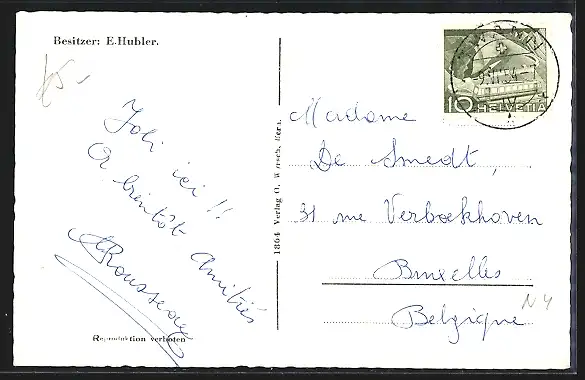 Besitzer: E. Hubler.
Joli ici !!
A bientôt
Amitiés
ARousseau
Reproduktion verboten
1864 Verlag O. Wyrsch, Bern.
10 HELVETIA
Madame
De Smedt,
31 rue Verboekhoven
Bruxelles
Belgique